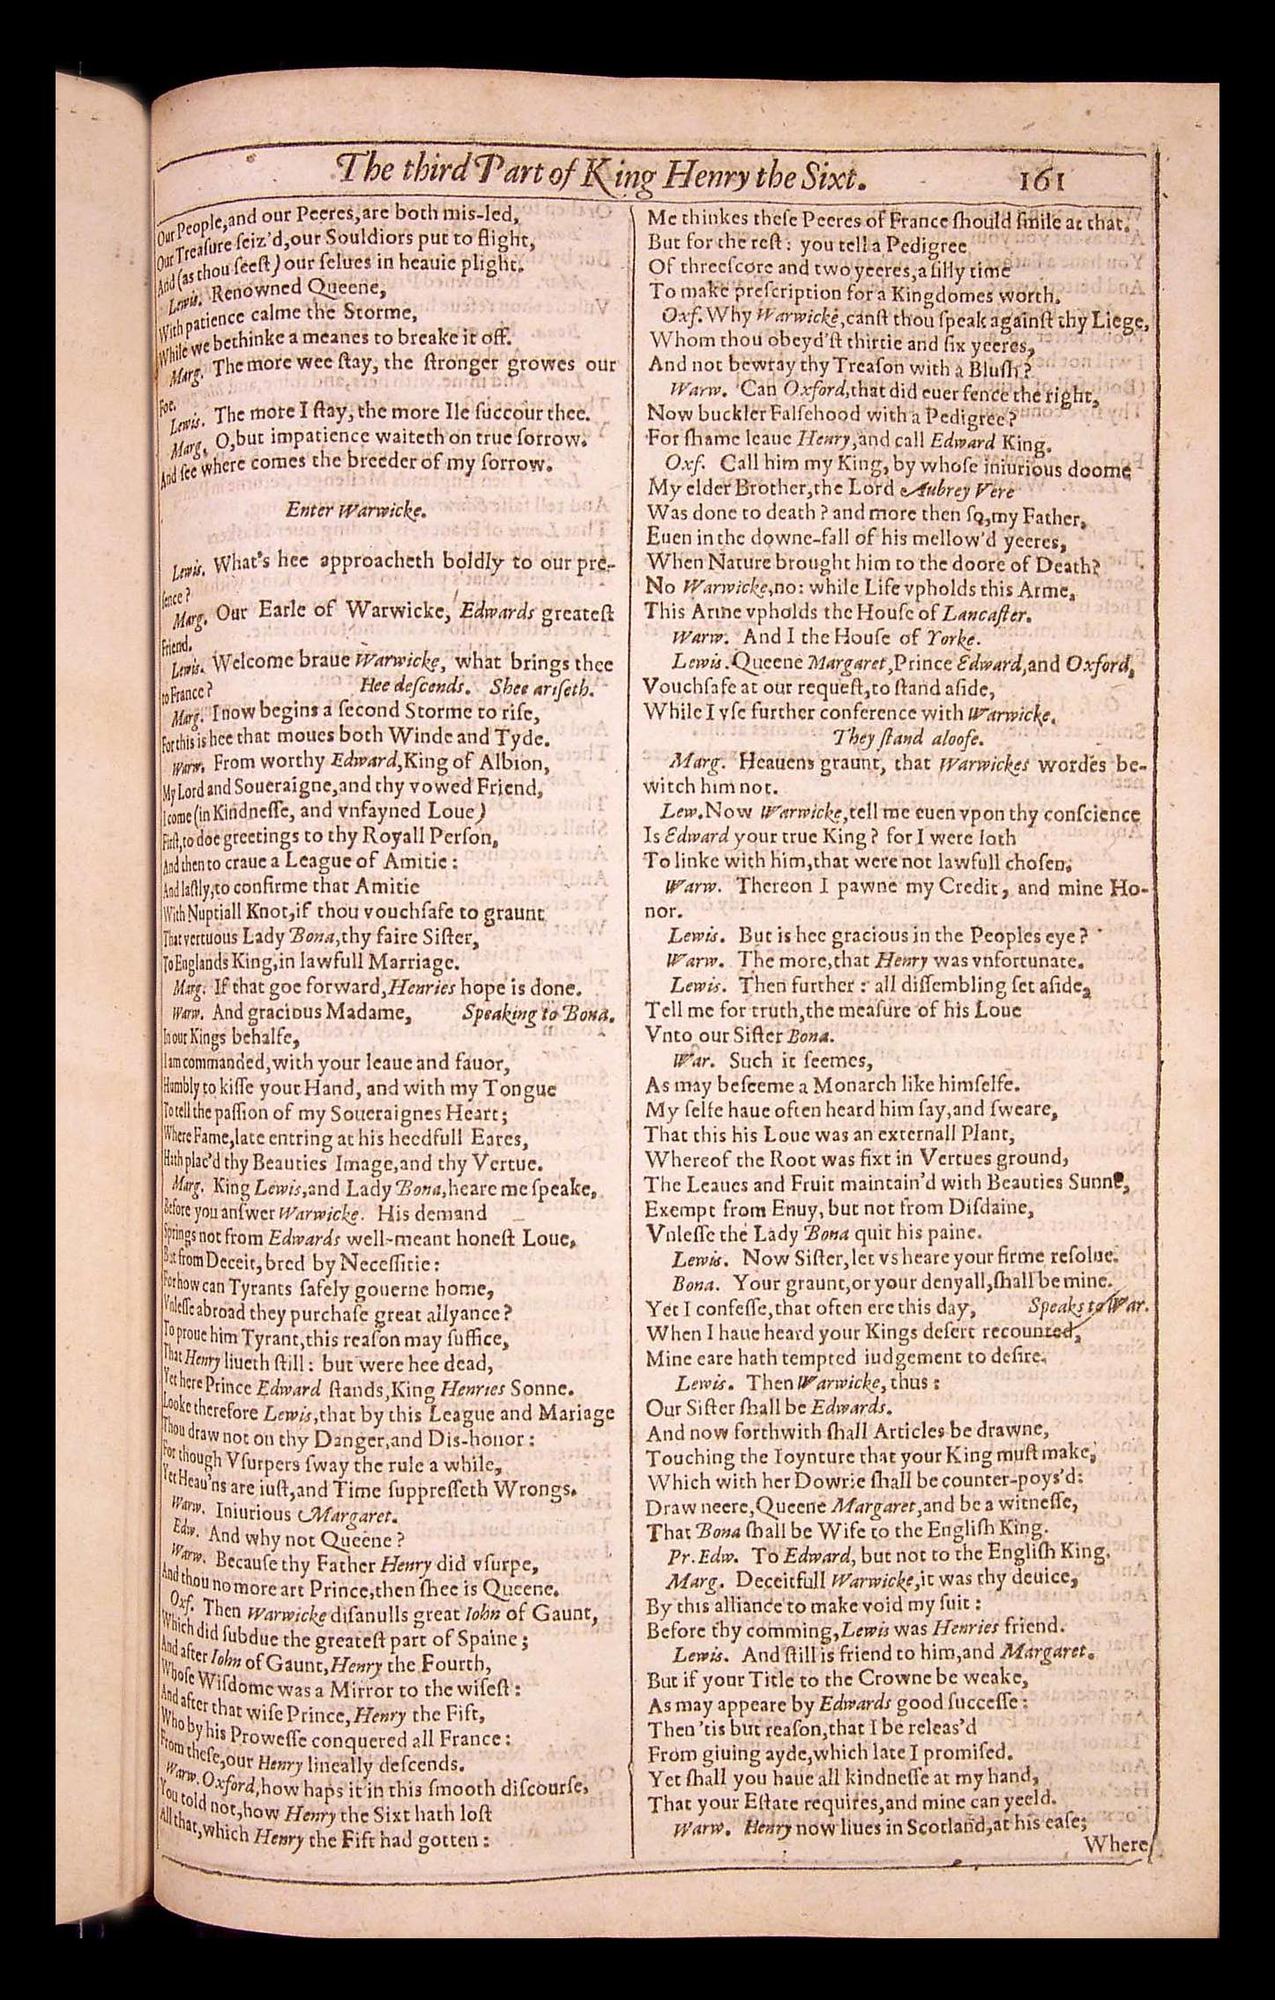 The third Part of King Henry the Sixt. 161
Our People,and our Peeres,are both mis-led,
Our Treaſure ſeiz'd,our Souldiors put to flight,
And (as thou ſeeſt) our ſelues in heauie plight.
Lewis. Renowned Queene,
With patience calme the Storme,
While we bethinke a meanes to breake it off.
Marg. The more wee ſtay, the ſtronger growes our
Foe.
Lewis. The more I ſtay, the more Ile ſuccour thee.
Marg. O, but impatience waiteth on true ſorrow.
And ſee where comes the breeder of my ſorrow.
Enter Warwicke.
Lewis. What's hee approacheth boldly to our pre-
ſence?
Marg. Our Earle of Warwicke, Edwards greateſt
Friend.
Lewis. Welcome braue Warwicke, what brings thee
to France? Hee deſcends. Shee ariſeth.
Marg. I now begins a ſecond Storme to riſe,
For this is hee that moues both Winde and Tyde.
Warw. From worthy Edward,King of Albion,
My Lord and Soueraigne,and thy vowed Friend,
I come (in Kindneſſe, and vnfayned Loue)
Firſt,to doe greetings to thy Royall Perſon,
And then to craue a League of Amitie:
And laſtly,to confirme that Amitie
With Nuptiall Knot,if thou vouchſafe to graunt
That vertuous Lady Bona,thy faire Siſter,
To Englands King,in lawfull Marriage.
Marg. If that goe forward,Henries hope is done.
Warw. And gracious Madame, Speaking to Bona.
In our Kings behalfe,
I am commanded,with your leaue and fauor,
Humbly to kiſſe your Hand, and with my Tongue
To tell the paſſion of my Soueraignes Heart;
Where Fame,late entring at his heedfull Eares,
Hath plac'd thy Beauties Image,and thy Vertue.
Marg. King Lewis,and Lady Bona,heare me ſpeake,
Before you anſwer Warwicke. His demand
Springs not from Edwards well-meant honeſt Loue,
But from Deceit, bred by Neceſſitie:
For how can Tyrants ſafely gouerne home,
Vnleſſe abroad they purchaſe great allyance?
To proue him Tyrant,this reaſon may ſuffice,
That Henry liueth ſtill: but were hee dead,
Yet here Prince Edward ſtands,King Henries Sonne.
Looke therefore Lewis,that by this League and Mariage
Thou draw not on thy Danger,and Dis-honor:
For though Vſurpers ſway the rule a while,
Yet Heau'ns are iuſt,and Time ſuppreſſeth Wrongs.
Warw. Iniurious Margaret.
Edw. And why not Queene?
Warw. Becauſe thy Father Henry did vſurpe,
And thou no more art Prince,then ſhee is Queene.
Oxf. Then Warwicke diſanulls great Iohn of Gaunt,
Which did ſubdue the greateſt part of Spaine;
And after Iohn of Gaunt,Henry the Fourth,
Whoſe Wiſdome was a Mirror to the wiſeſt:
And after that wiſe Prince,Henry the Fift,
Who by his Proweſſe conquered all France:
From theſe,our Henry lineally deſcends.
Warw. Oxford,how haps it in this ſmooth diſcourſe,
You told not,how Henry the Sixt hath loſt
All that,which Henry the Fift had gotten:
Me thinkes theſe Peeres of France ſhould ſmile at that.
But for the reſt: you tell a Pedigree
Of threeſcore and two yeeres,a ſilly time
To make preſcription for a Kingdomes worth.
Oxf. Why Warwicke,canſt thou ſpeak againſt thy Liege,
Whom thou obeyd'ſt thirtie and ſix yeeres,
And not bewray thy Treaſon with a Bluſh?
Warw. Can Oxford,that did euer fence the right,
Now buckler Falſehood with a Pedigree?
For ſhame leaue Henry,and call Edward King.
Oxf. Call him my King, by whoſe iniurious doome
My elder Brother,the Lord Aubrey Vere
Was done to death? and more then ſo,my Father,
Euen in the downe-fall of his mellow'd yeeres,
When Nature brought him to the doore of Death?
No Warwicke,no: while Life vpholds this Arme,
This Arme vpholds the Houſe of Lancaſter.
Warw. And I the Houſe of Yorke.
Lewis. Queene Margaret,Prince Edward,and Oxford,
Vouchſafe at our requeſt,to ſtand aſide,
While I vſe further conference with Warwicke.
They ſtand aloofe.
Marg. Heauens graunt, that Warwickes wordes be-
witch him not.
Lew. Now Warwicke,tell me euen vpon thy conſcience
Is Edward your true King? for I were loth
To linke with him,that were not lawfull choſen.
Warw. Thereon I pawne my Credit, and mine Ho-
nor.
Lewis. But is hee gracious in the Peoples eye?
Warw. The more,that Henry was vnfortunate.
Lewis. Then further: all diſſembling ſet aſide,
Tell me for truth,the meaſure of his Loue
Vnto our Siſter Bona.
War. Such it ſeemes,
As may beſeeme a Monarch like himſelfe.
My ſelfe haue often heard him ſay,and ſweare,
That this his Loue was an externall Plant,
Whereof the Root was fixt in Vertues ground,
The Leaues and Fruit maintain'd with Beauties Sunne,
Exempt from Enuy, but not from Diſdaine,
Vnleſſe the Lady Bona quit his paine.
Lewis. Now Siſter,let vs heare your firme reſolue.
Bona. Your graunt,or your denyall,ſhall be mine.
Yet I confeſſe,that often ere this day, Speaks to War.
When I haue heard your Kings deſert recounted,
Mine eare hath tempted iudgement to deſire.
Lewis. Then Warwicke, thus:
Our Siſter ſhall be Edwards.
And now forthwith ſhall Articles be drawne,
Touching the Ioynture that your King muſt make,
Which with her Dowrie ſhall be counter-poys'd:
Draw neere,Queene Margaret,and be a witneſſe,
That Bona ſhall be Wife to the Engliſh King.
Pr. Edw. To Edward, but not to the Engliſh King.
Marg. Deceitfull Warwicke,it was thy deuice,
By this alliance to make void my ſuit:
Before thy comming,Lewis was Henries friend.
Lewis. And ſtill is friend to him,and Margaret.
But if your Title to the Crowne be weake,
As may appeare by Edwards good ſucceſſe:
Then 'tis but reaſon,that I be releas'd
From giuing ayde,which late I promiſed.
Yet ſhall you haue all kindneſſe at my hand,
That your Eſtate requires,and mine can yeeld.
Warw. Henry now liues in Scotland,at his eaſe;
Where